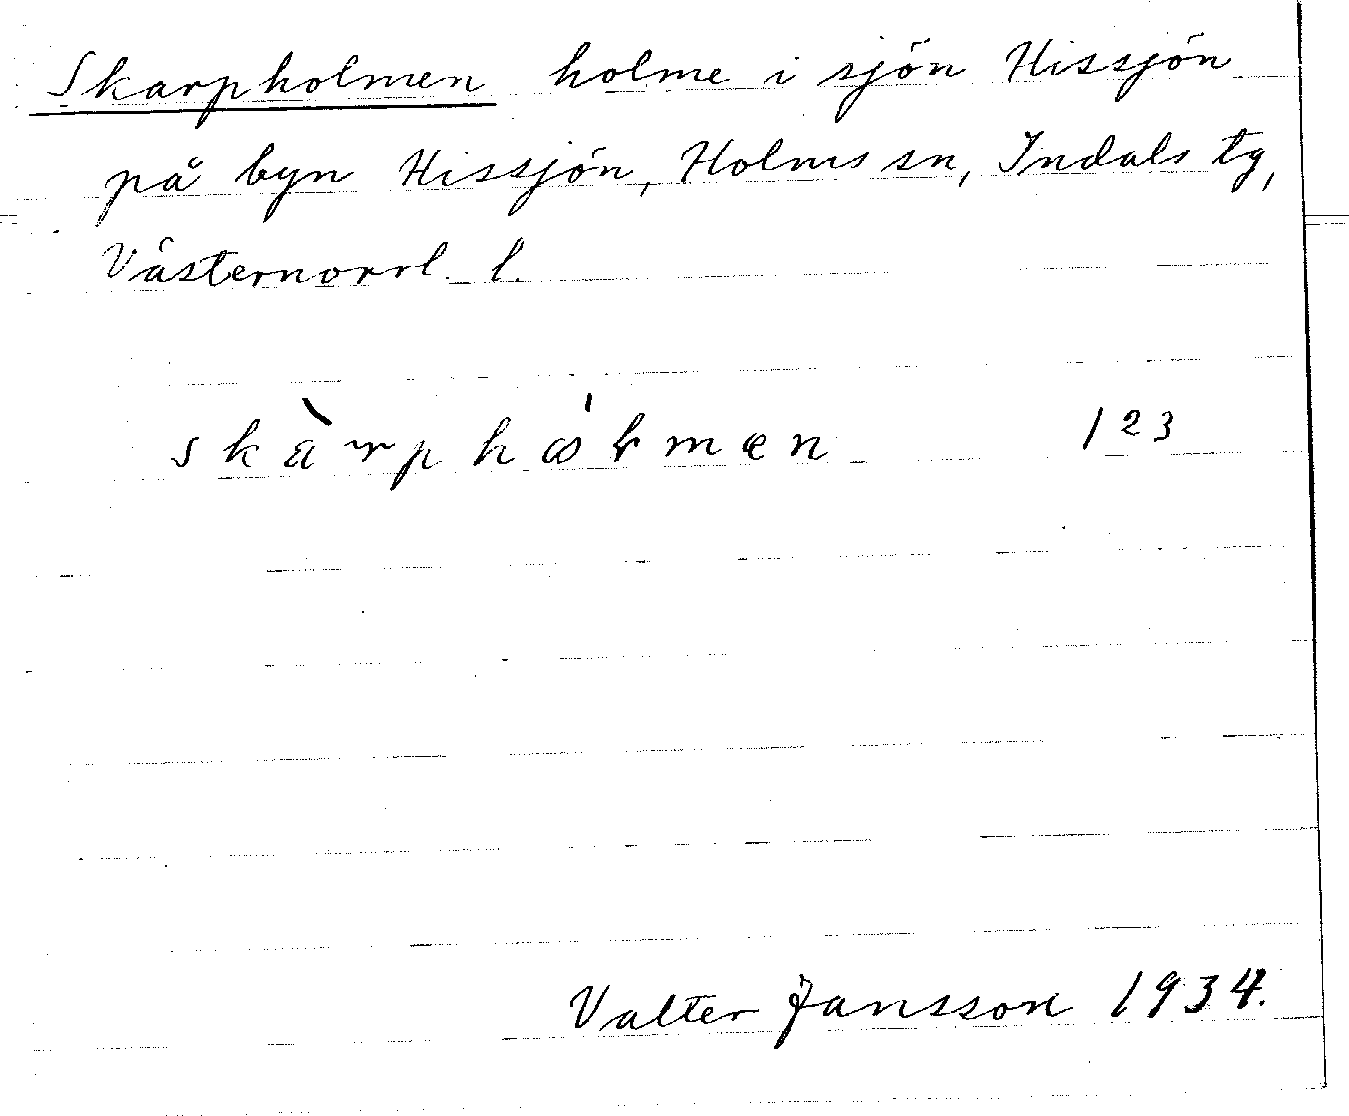 Skarpholmen holme i sjön Hissjön
på byn Hissjön, Holms sn, Indals tg,
Västernorrl. l.
123
Valter Jansson 1934.